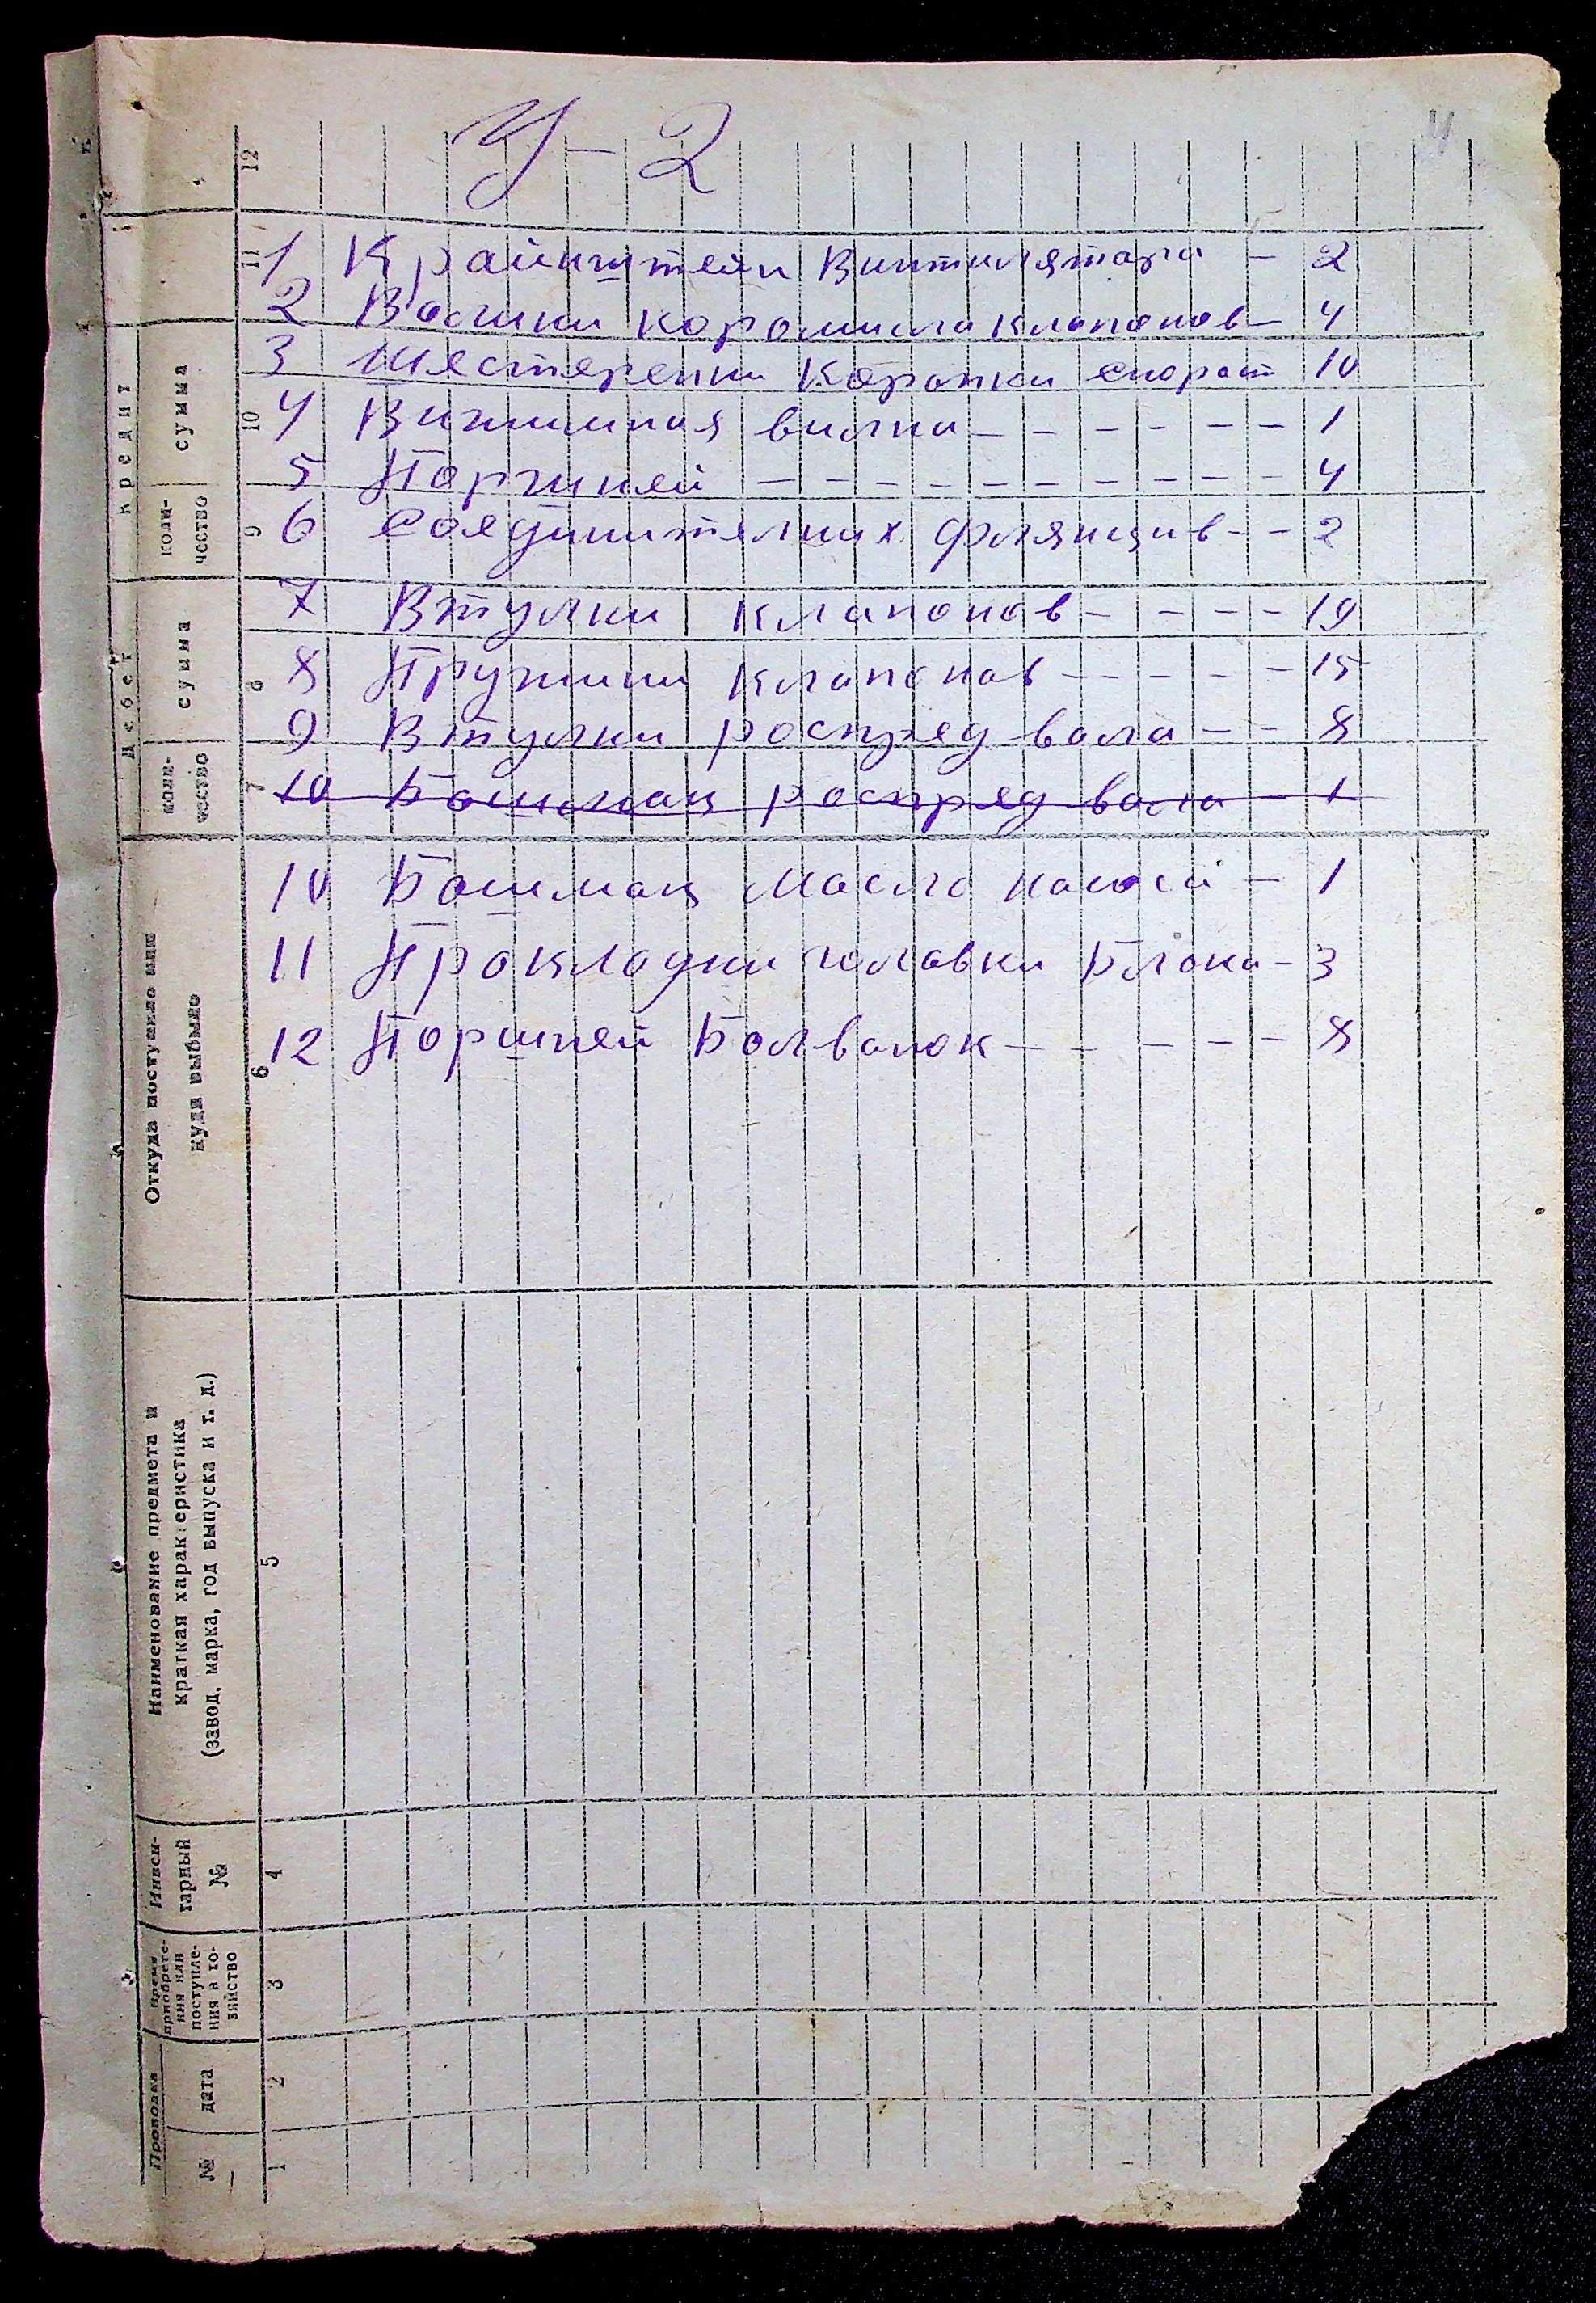 У-2
4
1 Крайнштейн Винтилятара - 2
2 Валики коромисла клапонов - 4
3 Шестеренки Каропки скорост 10
4 Вижимная вилка - - - - - - - 1
5 Поршней - - - - - - - - - - 4
6 Соединителних флянцив - - 2
7 Втулки клапонов - - - - 19
8 Пружини клапонов - - - - - 15
9 Втулки роспред вала - - 8
10 Башмак роспред вала - 1
10 Башмак Масло насосй - 1
11 Прокладки головки Блока - 3
12 Поршней Болванок - - - - - 8
Проводка
№
дата
Время приобрете-
ния или
поступле-
ния в хо-
зяйство
Инвен-
тарный
№
Наименование предмета и
краткая характеристика
(завод, марка, год выпуска и т. д.)
Откуда поступило или
куда выбыло
Дебет
коли-
чество
сумма
Кредит
коли-
чество
сумма
1 2 3 4 5 6 7 8 9 10 11 12